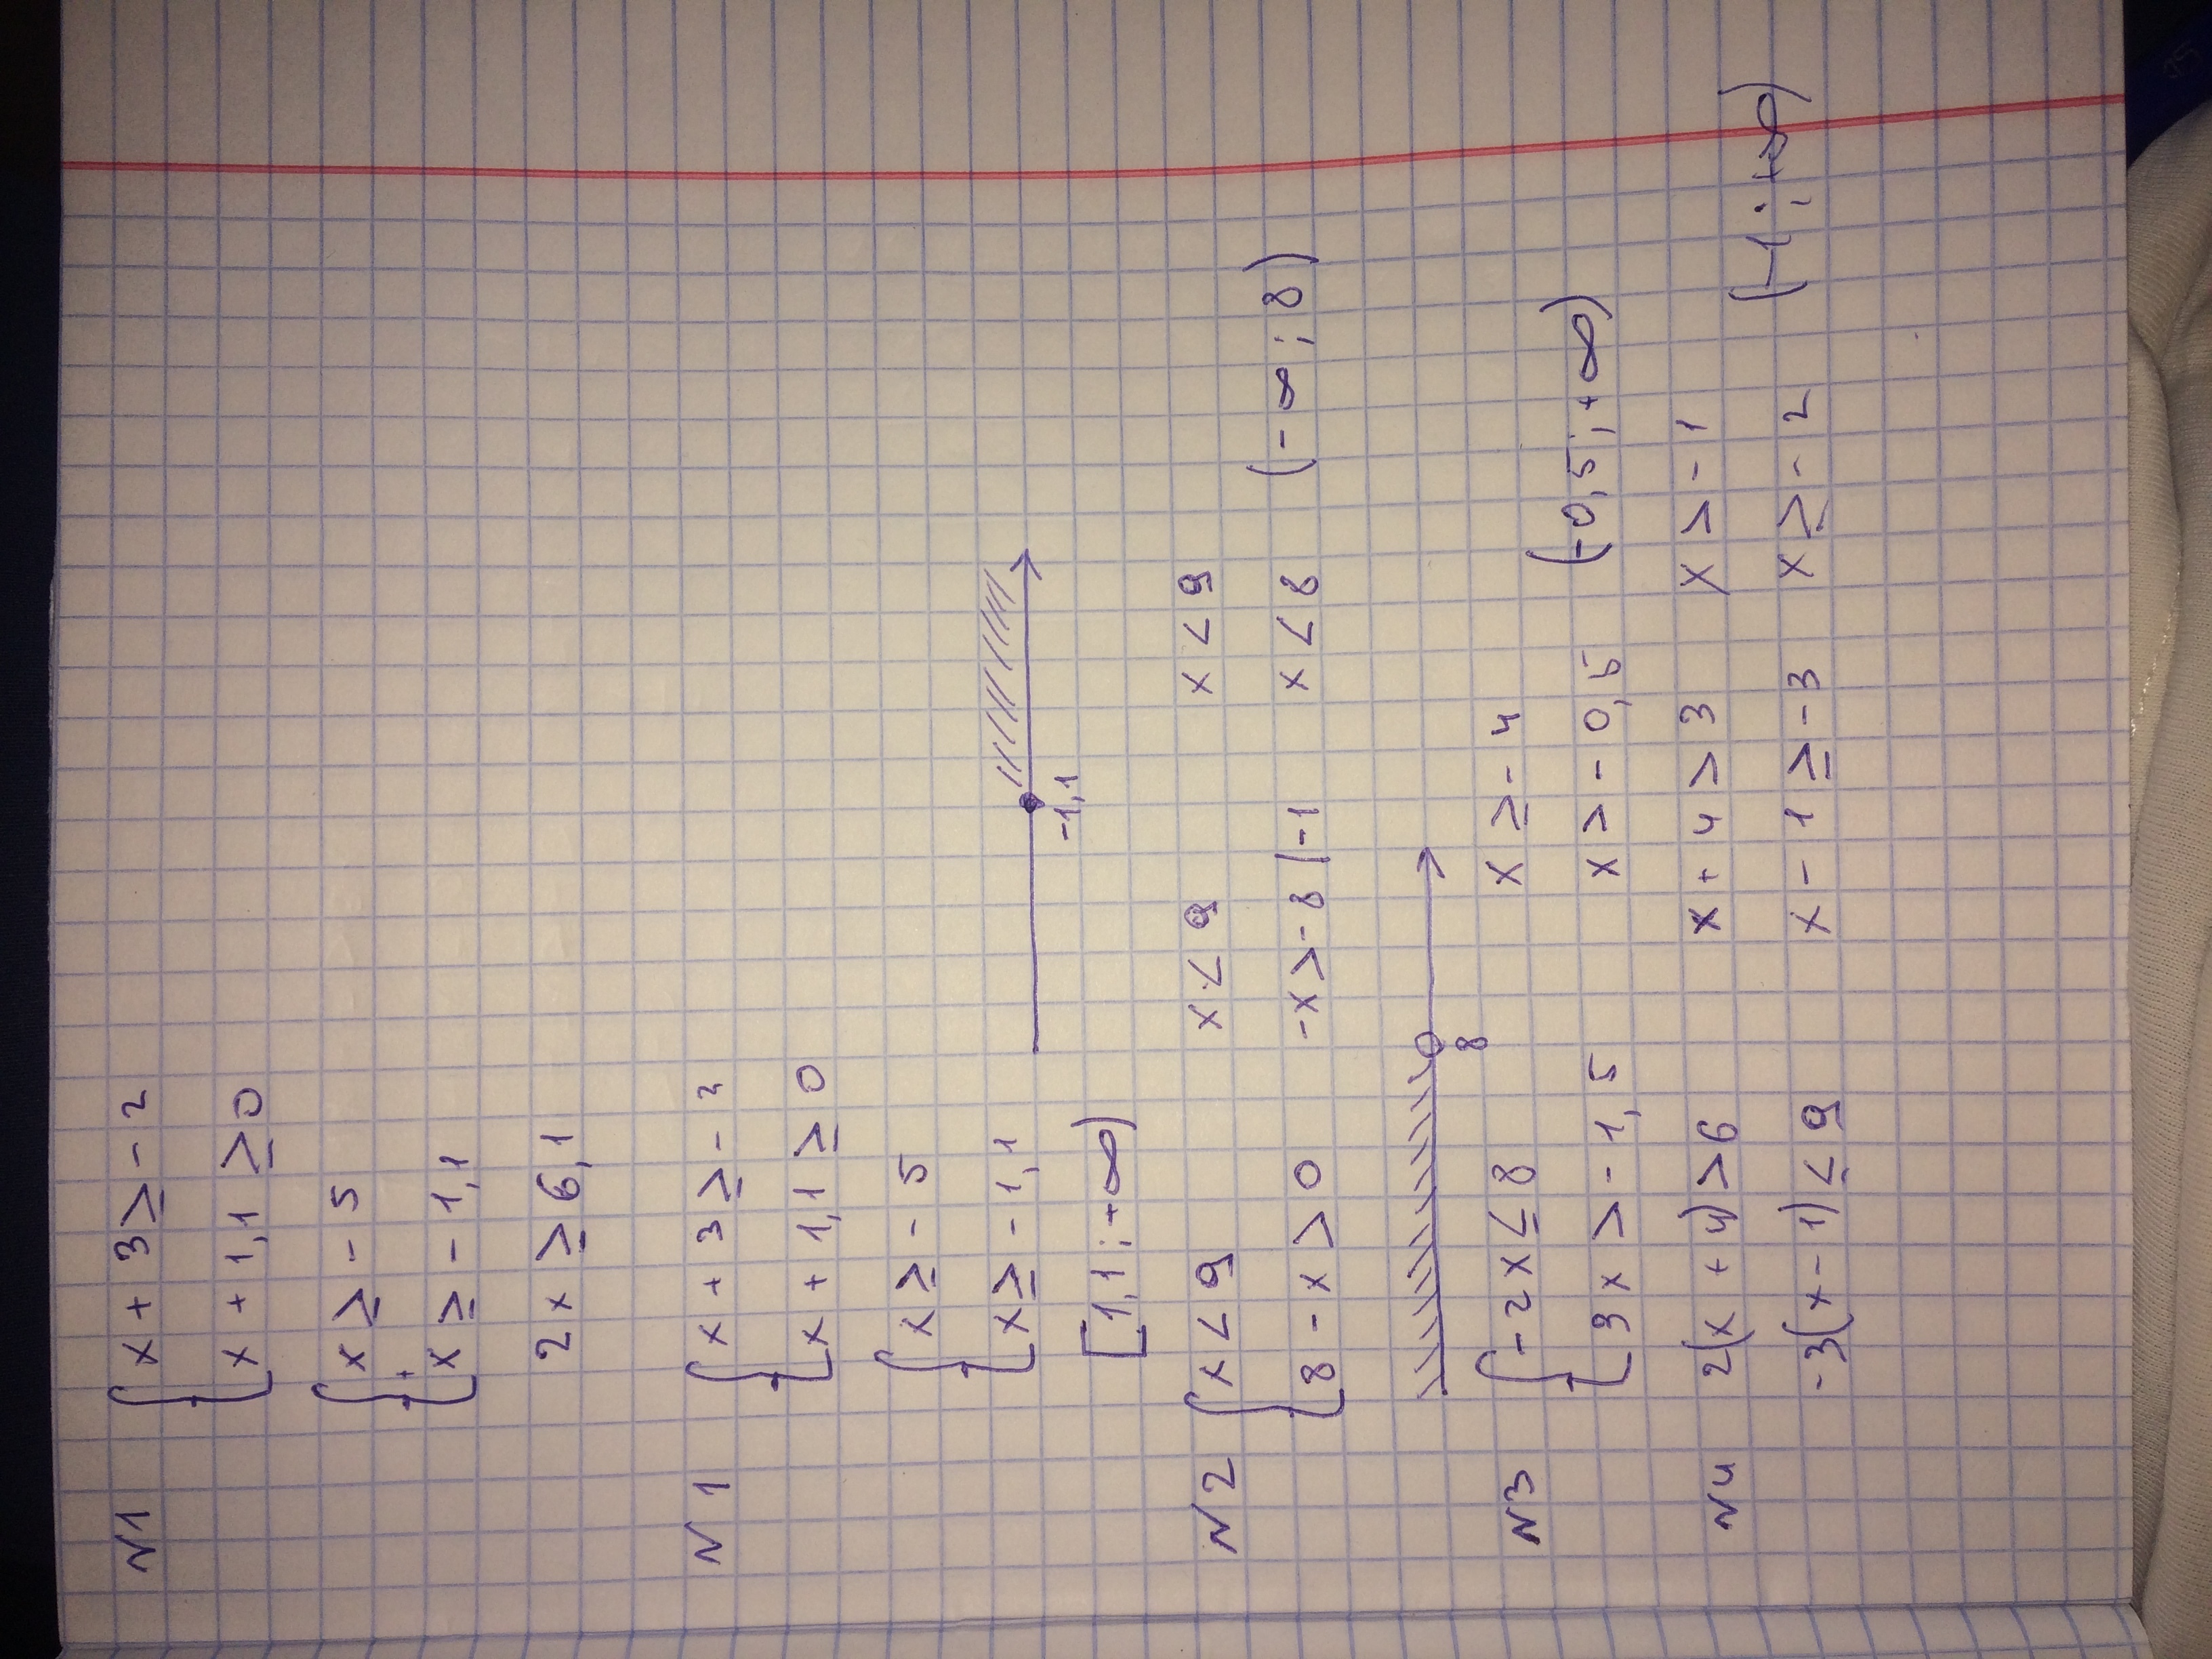 N1 { x + 3 ≥ - 2
x + 1,1 ≥ 0
{ x ≥ - 5
+
x ≥ - 1,1
2x ≥ 6,1
N 1 { x + 3 ≥ - 2
x + 1,1 ≥ 0
{ x ≥ - 5
x ≥ - 1,1
-1,1
[1,1 ; +∞)
N 2 { x < 9 x < 9 x < 9
8 - x > 0 -x > - 8 |-1 x < 8 (- ∞ ; 8)
8
N3 { - 2x ≤ 8 x ≥ - 4
3x > - 1,5 x > - 0,5 (-0,5 ; +∞)
N4 2(x + 4) > 6 x + 4 > 3 x > - 1
-3(x - 1) ≤ 9 x - 1 ≥ - 3 x ≥ - 2 (-1 ; +∞)